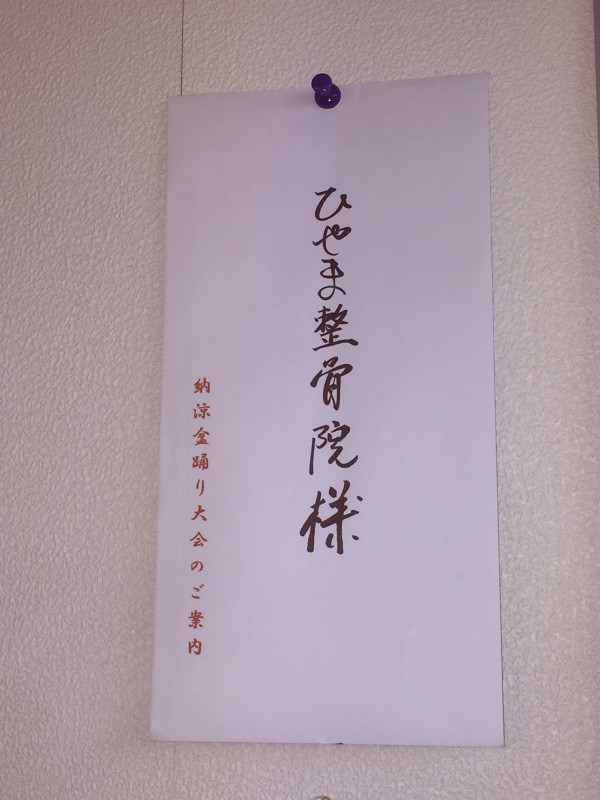 ひやま整骨院様
納涼盆踊り大会のご案内